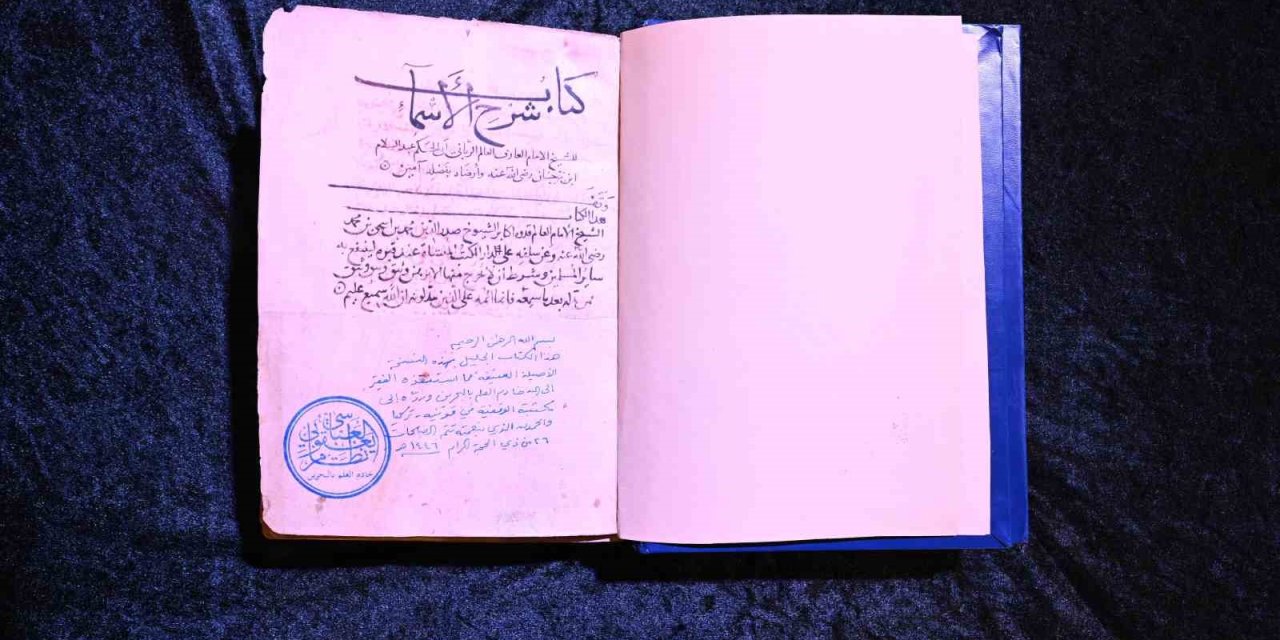 كتاب
شرح الأسماء
للشيخ الامام العارف العالم الرباني أبي الحكم عبد السلام
ابن برجان رضي الله عنه وأرضاه بفضله آمين
وقف
هذا الكتاب
الشيخ الامام العالم قدوة اكابر الشيوخ صدر الدين محمد بن اسحق بن محمد
رضي الله عنه وعن سلفه على دار الكتب المنشأة عند قبره لينتفع به
ساير المسلمين وشرط أن لا يخرج منها الا برهن وثيق
فمن بدله بعد ما سمعه فانما اثمه على الذين يبدلونه ان الله سميع عليم
بسم الله الرحمن الرحيم
هذا الكتاب الجليل بهذه النسخة
الأصيلة العتيقة مما استنقذه الفقير
إلى الله خادم العلم بالبحرين ورده إلى
مكتبته الوقفية من قونية - تركيا
والحمد لله الذي بنعمته تتم الصالحات
٢٦ من ذي الحجة الحرام ١٤٤٦ هـ
نظام يعقوبي العباسي
خادم العلم بالبحرين